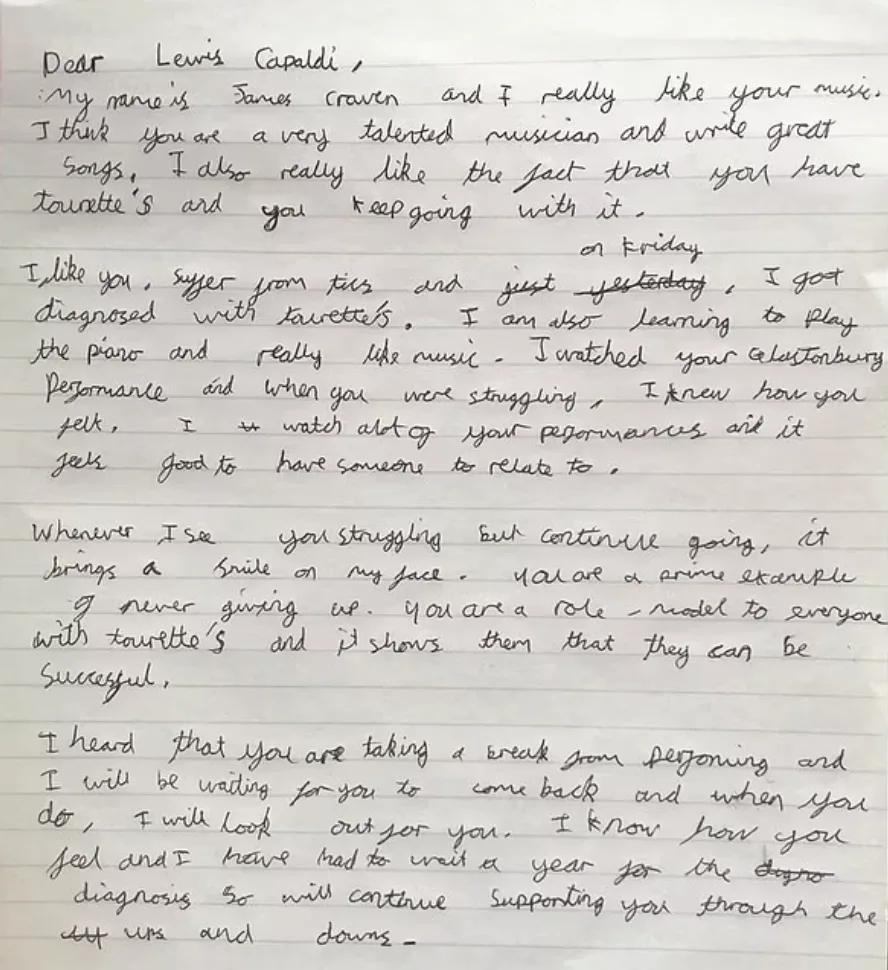 Dear Lewis Capaldi,
My name is James Craven and I really like your music.
I think you are a very talented musician and write great
songs. I also really like the fact that you have
tourette's and you keep going with it.
on Friday
I, like you, suffer from tics and just yesterday, I got
diagnosed with tourette's. I am also learning to play
the piano and really like music. I watched your Glastonbury
performance and when you were struggling, I knew how you
felt. I watch alot of your peformances and it
feels good to have someone to relate to.
Whenever I see you struggling but continue going, it
brings a smile on my face. You are a prime example
of never giving up. You are a role-model to everyone
with tourette's and it shows them that they can be
successful.
I heard that you are taking a break from perfoming and
I will be waiting for you to come back and when you
do, I will look out for you. I know how you
feel and I have had to wait a year for the
diagnosis so will continue supporting you through the
ups and downs.